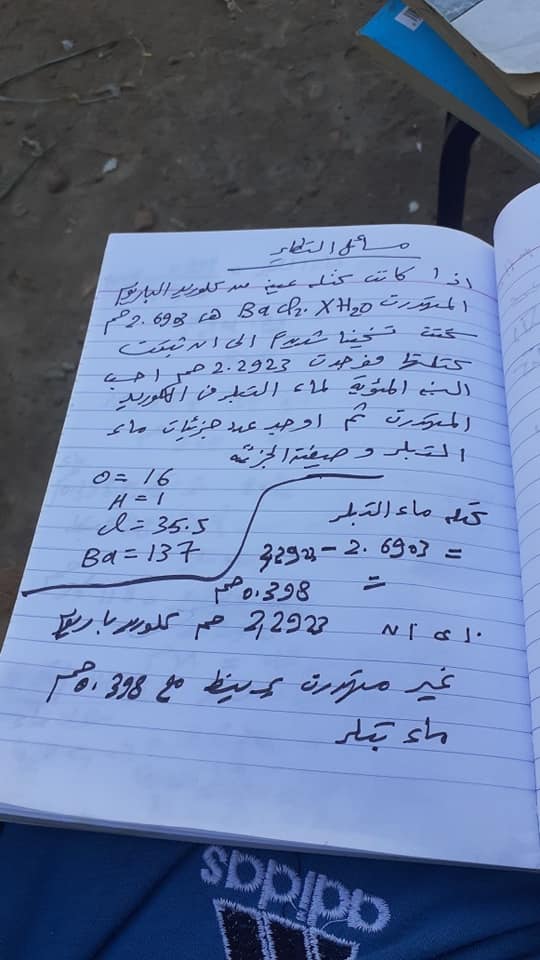 مسائل التطاير
اذا كانت كتله عينه من كلوريد الباريوم
المتهدرت BaCl₂. XH₂O هى 2.6903 جم
سخنت تسخينا شديدا الى ان ثبتت
كتلتها فوجدت 2.2923 جم احسب
النسبه المئويه لماء التبلر فى الكلوريد
المتهدرت ثم اوجد عدد جزئيات ماء
التبلر وصيغته الجزئيه
O = 16
H = 1
Cl = 35.5
Ba = 137
كتله ماء التبلر
= 2.6903 - 2,2923
= 0.398 جم
.اى ان 2,2923 جم كلوريد باريوم
غير متهدرت يرتبط مع 0.398 جم
ماء تبلر
adidas